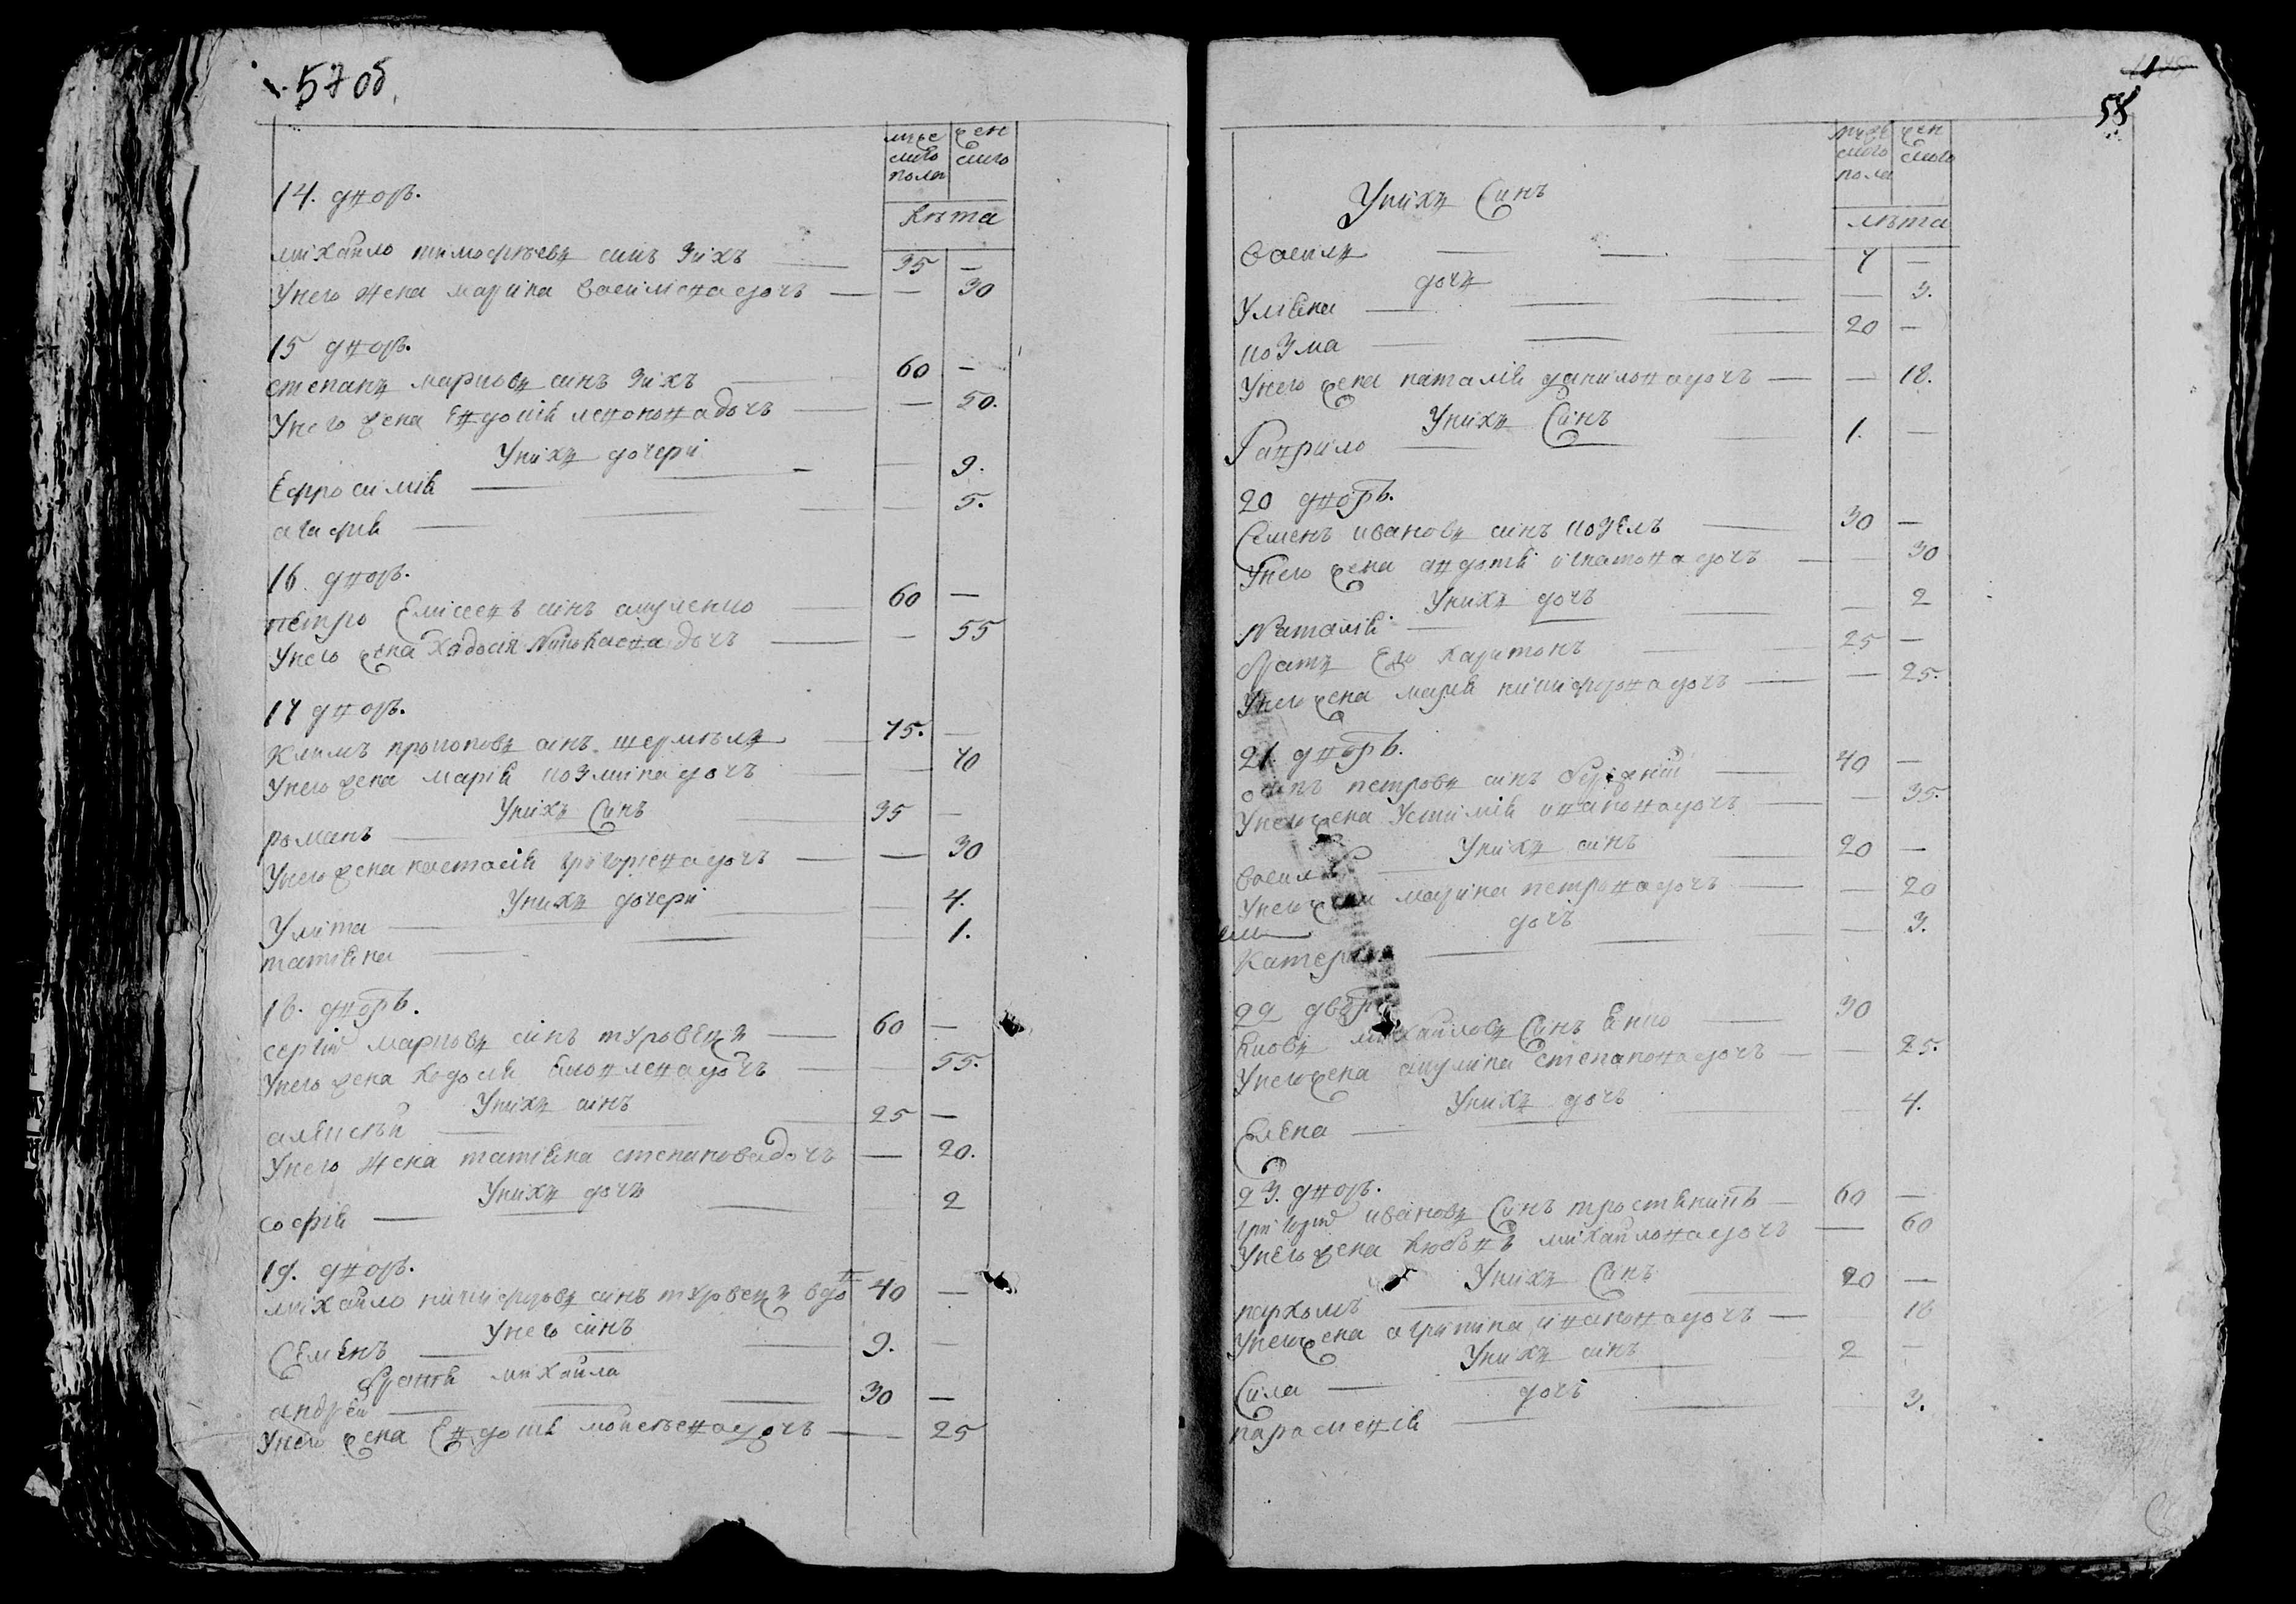 57 об.
мужеского пола
женского
лѣта
14. дворъ.
михайло тимофѣевъ синъ Зихъ — 35 —
У него жена марина василиева дочъ — — 30
15 дворъ.
степанъ марковъ синъ Зихъ 60 —
У него жена Евдокия леоновадочъ — — 50.
У нихъ дочери
Ефросимия — — — 9.
агафия — — — — 5.
16 дворъ.
петро Елисеевъ синъ — 60 —
У него жена Ходосия дочъ — — 55
17 дворъ.
Климъ прокоповъ синъ — 75. —
У него жена мария козмина дочъ — — 70
У нихъ Синъ
романъ — — 35 —
У него жена настасия григориевадочъ — — 30
У нихъ дочери
Улита — — — 4.
татияна — — — 1.
18. дворъ.
сергий марковъ синъ туровецъ — 60 —
У него жена ходосия дочъ — — 55.
У нихъ синъ
алексѣй — — 25 —
У него жена татияна степановадочъ — 20.
У нихъ дочъ
софия — — — 2
19. дворъ.
михайло никифоровъ синъ туровецъ вдов 40 —
У него синъ
Семенъ — — — 9. —
братъ михайла
андрей — — — 30 —
У него жена Евдотия моисѣевадочъ — — 25
58
мужеского пола
женского
лѣта
У нихъ Синъ
василь — — — 7 —
дочъ
Улияна — — — — 3.
козма — — — 20 —
У него жена наталия даниловадочъ — — 18.
У нихъ Синъ
Гаврило — — 1. —
20 дворъ.
Семенъ ивановъ синъ козелъ — 30 —
У него жена авдотия игнатова дочъ — — 30
У нихъ дочъ
Наталия — — — 2
братъ Его харитонъ — 25 —
У него жена мария никифоровадочъ — — 25.
21. дворъ.
осипъ петровъ синъ — 40 —
У него жена Устимия ивановадочъ — — 35.
У нихъ синъ
василь — — 20 —
У него жена марина петровадочъ — — 20
дочъ
Катерина — — — 3.
22 дворъ
яковъ михайловъ Синъ — 30
У него жена акулина степановадочъ — — 25.
У нихъ дочъ
Елена — — — 4.
23. дворъ.
григорий ивановъ Синъ — 60 —
У него жена любовъ михайловадочъ — — 60
У нихъ Синъ
пархомъ — — 20 —
У него жена агрипина ивановадочъ — 18
У нихъ синъ
Сила — — 2 —
дочъ
парасмевия — — 3.